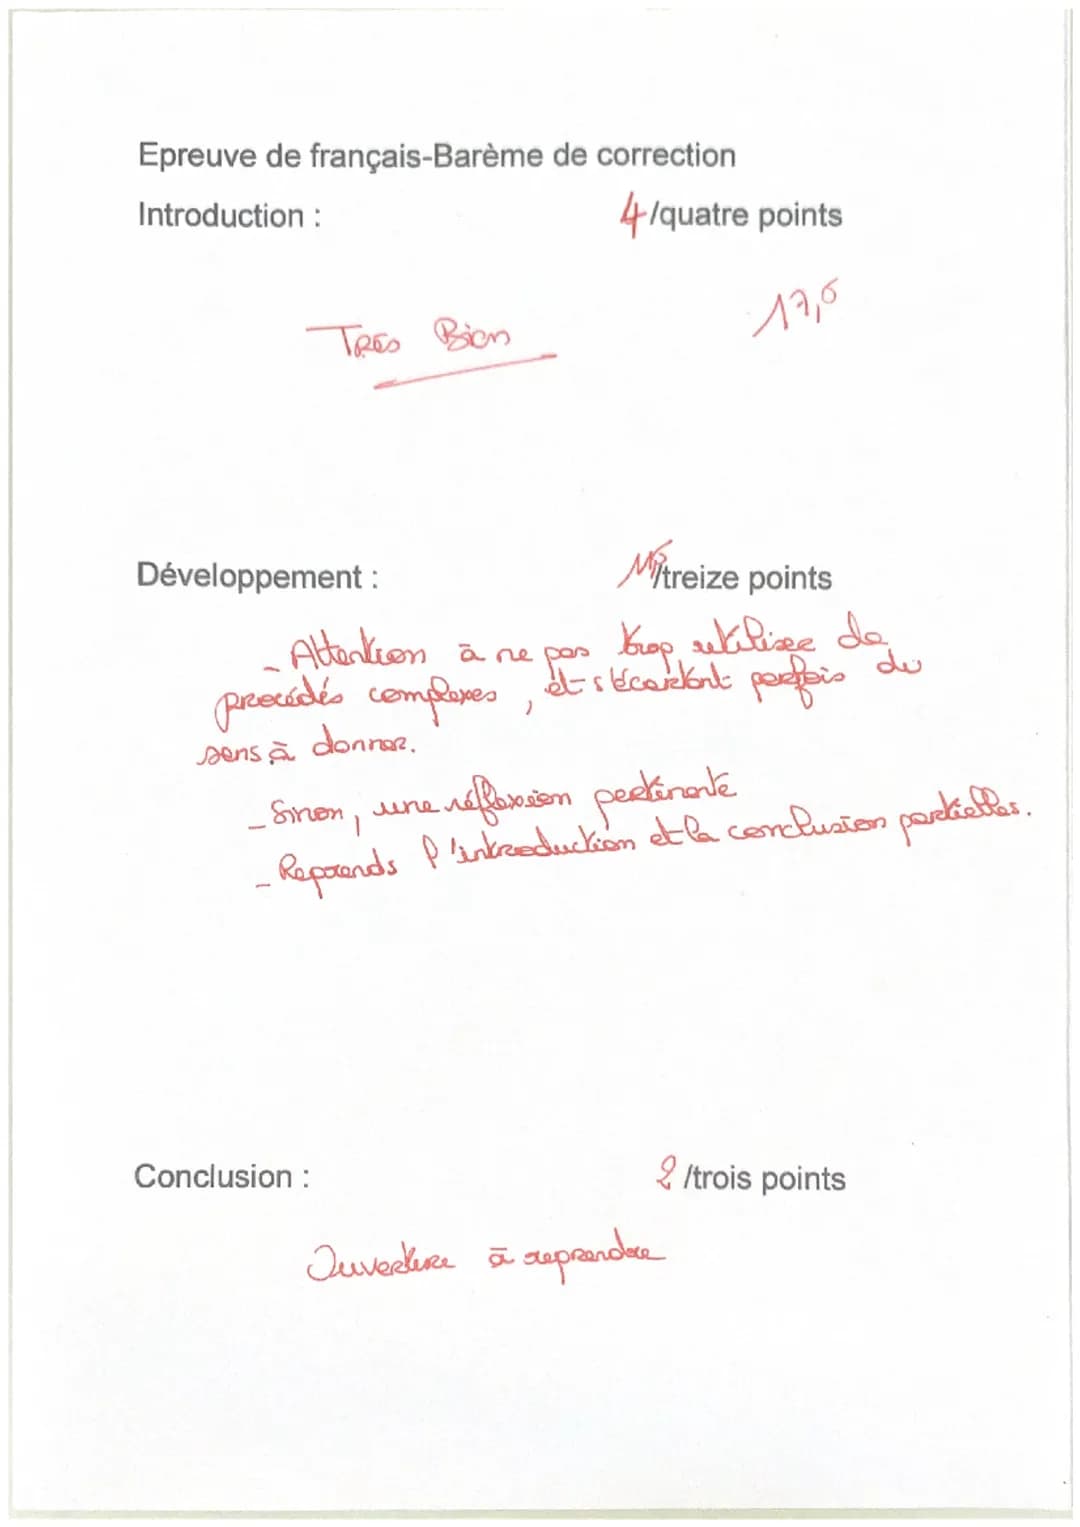 Epreuve de français-Barème de correction
Introduction : 4/quatre points
17,5
Très Bien
Développement : /treize points
- Attention à ne pas trop utiliser de
procédés complexes, et s'écartant parfois du
sens à donner.
- Sinon, une réflexion pertinente
- Reprends l'introduction et la conclusion partielles.
Conclusion : 2 /trois points
Ouverture à reprendre